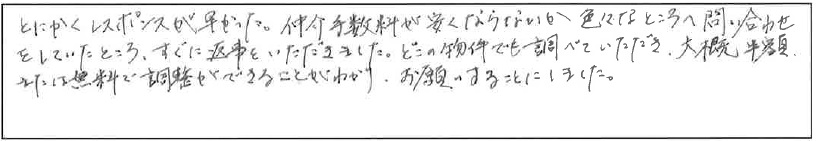 とにかくレスポンスが早かった。仲介手数料が安くならないか色々なところへ問い合わせ
をしていたところ、すぐに返事をいただきました。どこの物件でも調べていただき、大概半額、
または無料で調整ができることがわかり、お願いすることにしました。